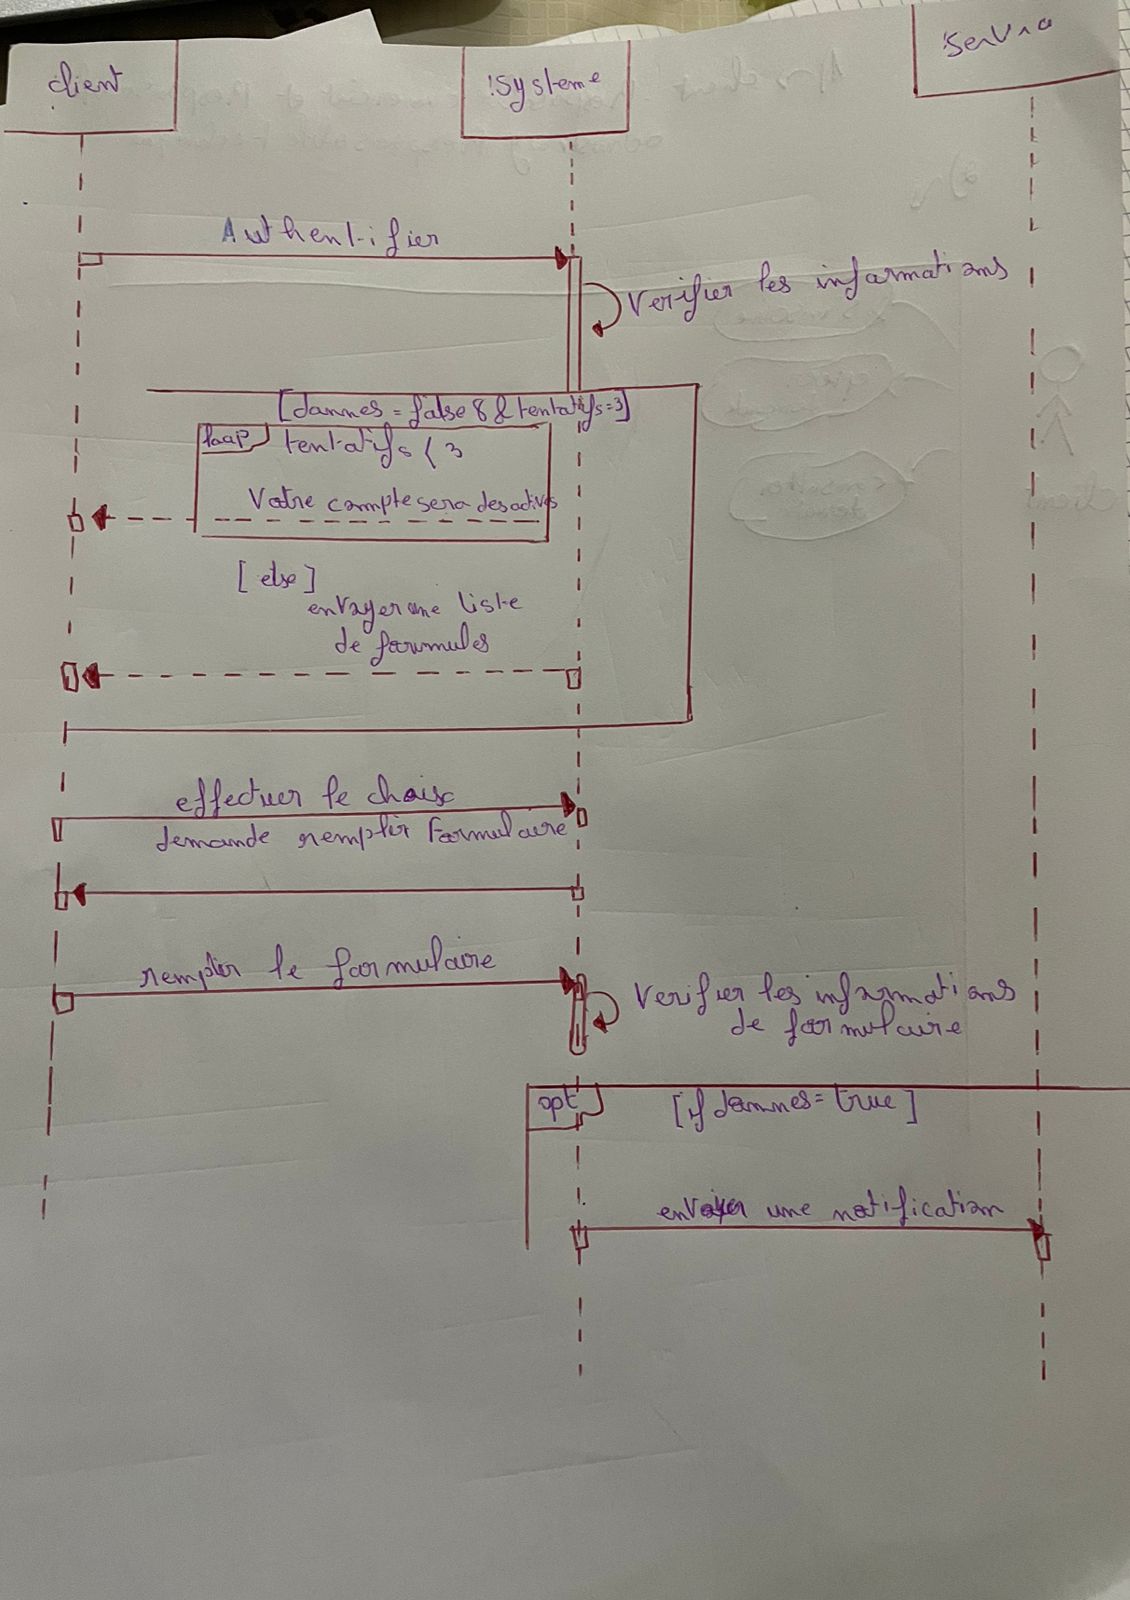 client
:Systeme
Authentifier
Verifier les informations
[donnes = false && tentatifs=3]
loop
tentatifs < 3
Votre compte sera desactivés
[else]
envoyer une liste
de formules
effectuer le choix
demande remplir Formulaire
remplir le formulaire
Verifier les informations
de formulaire
opt
[if donnes = true]
envoyer une notification